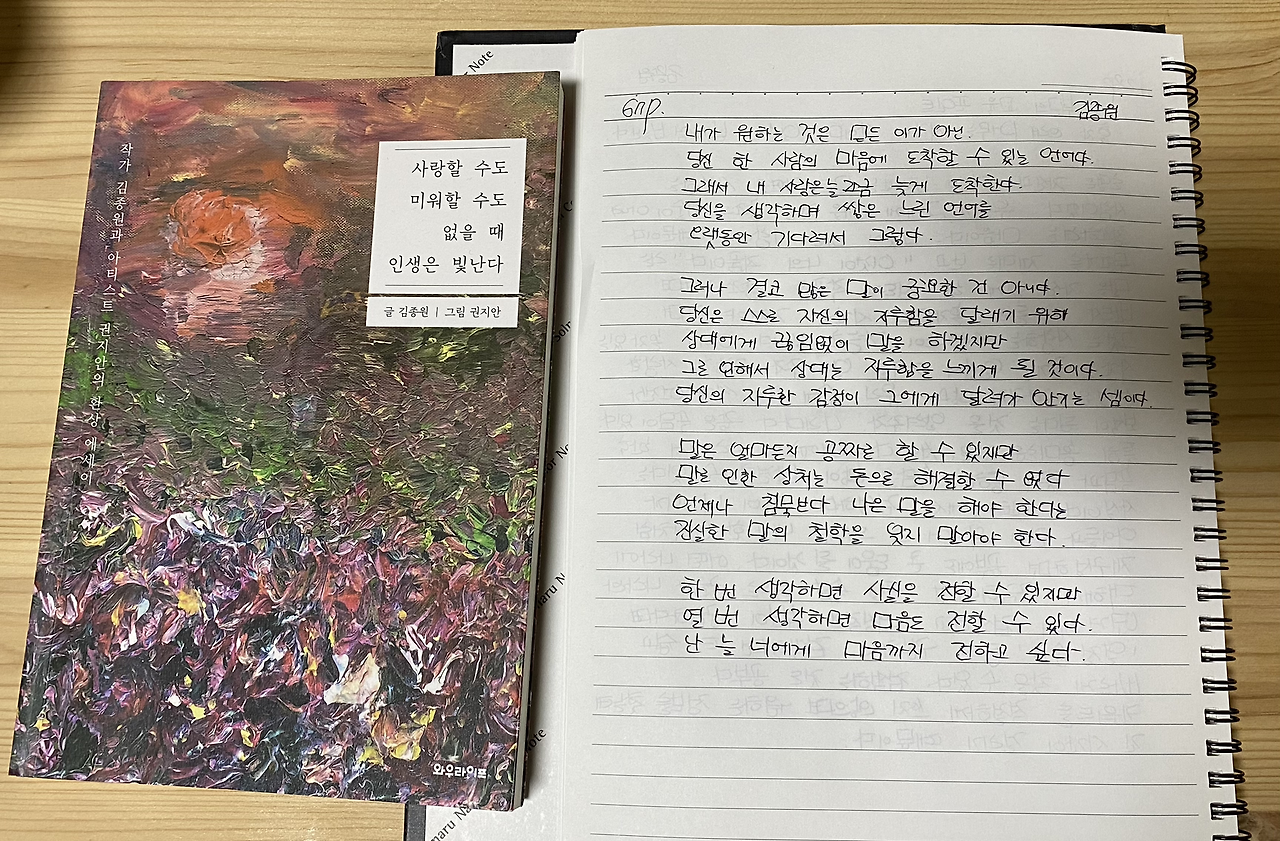 작가 김종원과 아티스트 권지안의 환상 에세이
사랑할 수도
미워할 수도
없을 때
인생은 빛난다
글 김종원 | 그림 권지안
와우라이프
Note
61p.
김종원
내가 원하는 것은 모든 이가 아닌.
당신 한 사람의 마음에 도착할 수 있는 언어다.
그래서 내 사랑은 늘 조금 늦게 도착한다.
당신을 생각하며 쌓은 느린 언어를
오랫동안 기다려서 그렇다.
그러나 결코 많은 말이 중요한 건 아니다.
당신은 스스로 자신의 지루함을 달래기 위해
상대에게 끊임없이 말을 하겠지만
그로 인해서 상대는 지루함을 느끼게 될 것이다.
당신의 지루한 감정이 그에게 달려가 안기는 셈이다.
말은 얼마든지 공짜로 할 수 있지만
말로 인한 상처는 돈으로 해결할 수 없다
언제나 침묵보다 나은 말을 해야 한다는
진실한 말의 철학을 잊지 말아야 한다.
한 번 생각하면 사실을 전할 수 있지만
열 번 생각하면 마음도 전할 수 있다.
난 늘 너에게 마음까지 전하고 싶다.